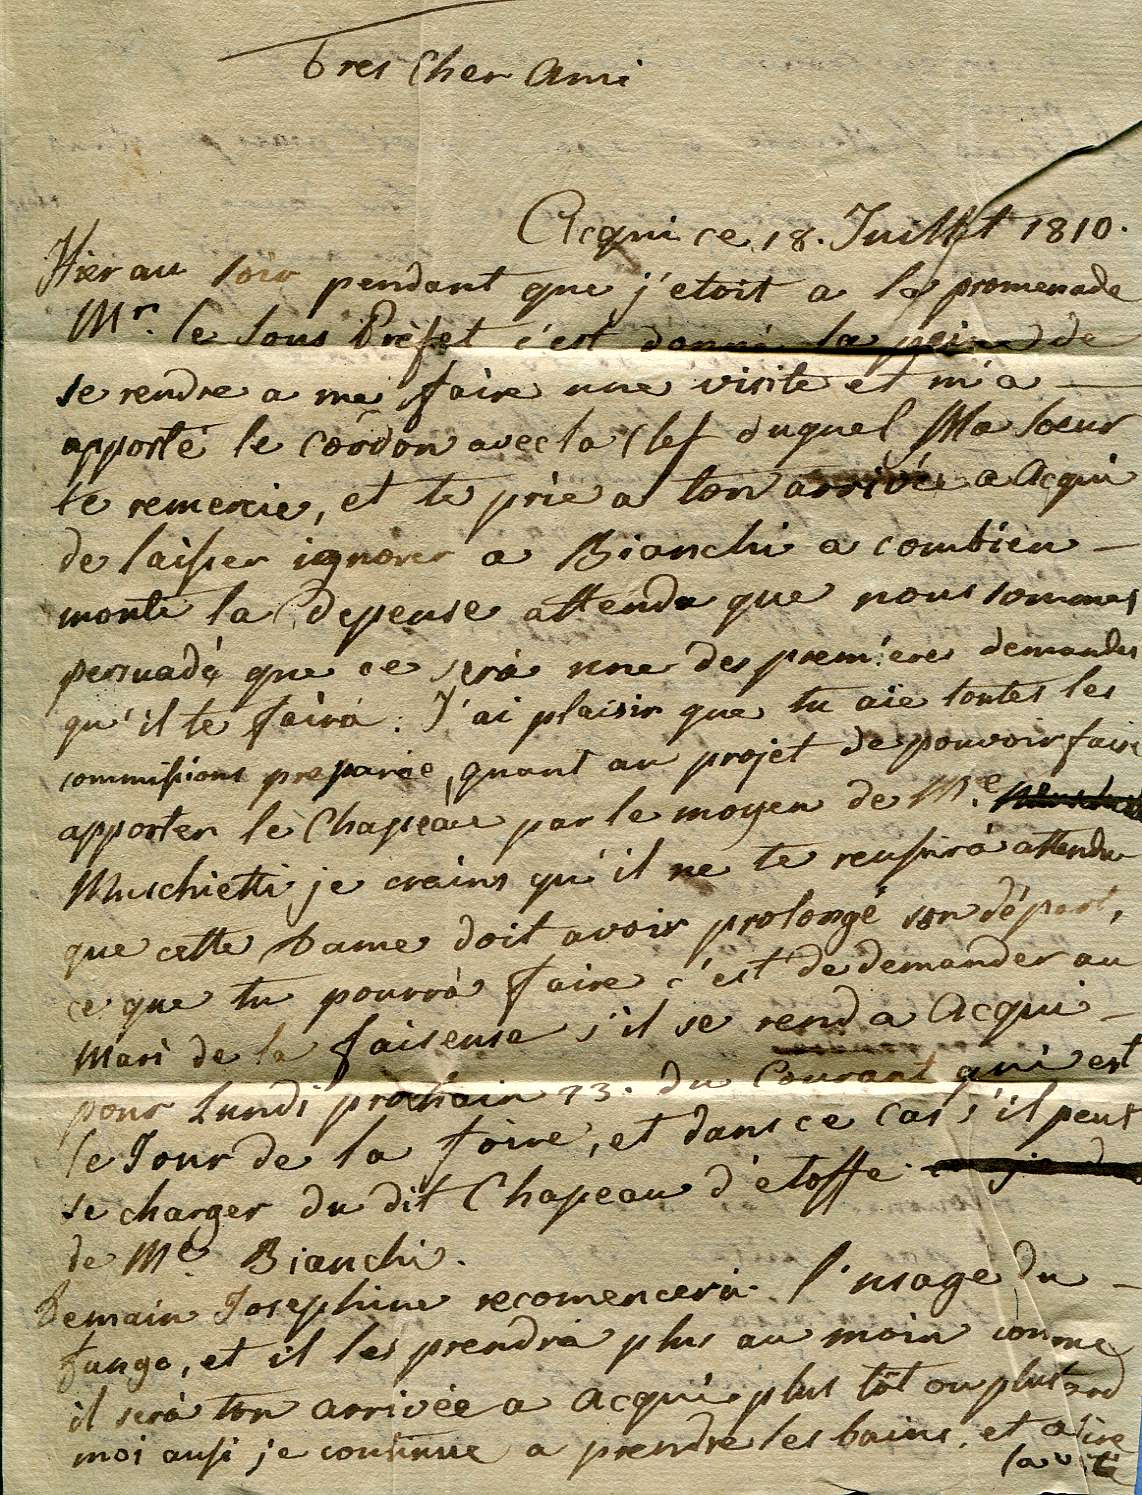 Tres Cher Ami
Acqui ce 18. Juillet 1810.
Hier au soir pendant que j'etoit a la promenade
Mr. le Sous Prèfet c'est donné la peine de
se rendre a me faire une visite et m'a
apporté le Cordon avec la Clef duquel Ma Soeur
te remercie, et te prie a ton arrivée a Acqui
de laisser ignorer a Bianchi a combien
monte la depense attendu que nous sommes
persuadé que ce serà une des premieres demandes
qu'il te fairà. J'ai plaisir que tu aïe toutes les
commissions preparée, quant au projet de pouvoir faire
apporter le Chapeau par le moyen de Me.
Muschietti je crains qu'il ne te reussirà attendu
que cette Dame doit avoir prolongé son départ,
ce que tu pourrà faire c'est de demander au
Mari de la faiseuse s'il se rend a Acqui
pour Lundi prochain 23. du Courant qui est
le Jour de la foire, et dans ce Cas s'il peut
se charger du dit Chapeau d'étoffe
de Me. Bianchi.
Demain Josephine recomencerà l'usage du
fango, et il les prendrà plus au moin comme
il serà ton arrivée a Acqui plus tôt ou plus tard
moi aussi je continue a prendre les bains, et a
la